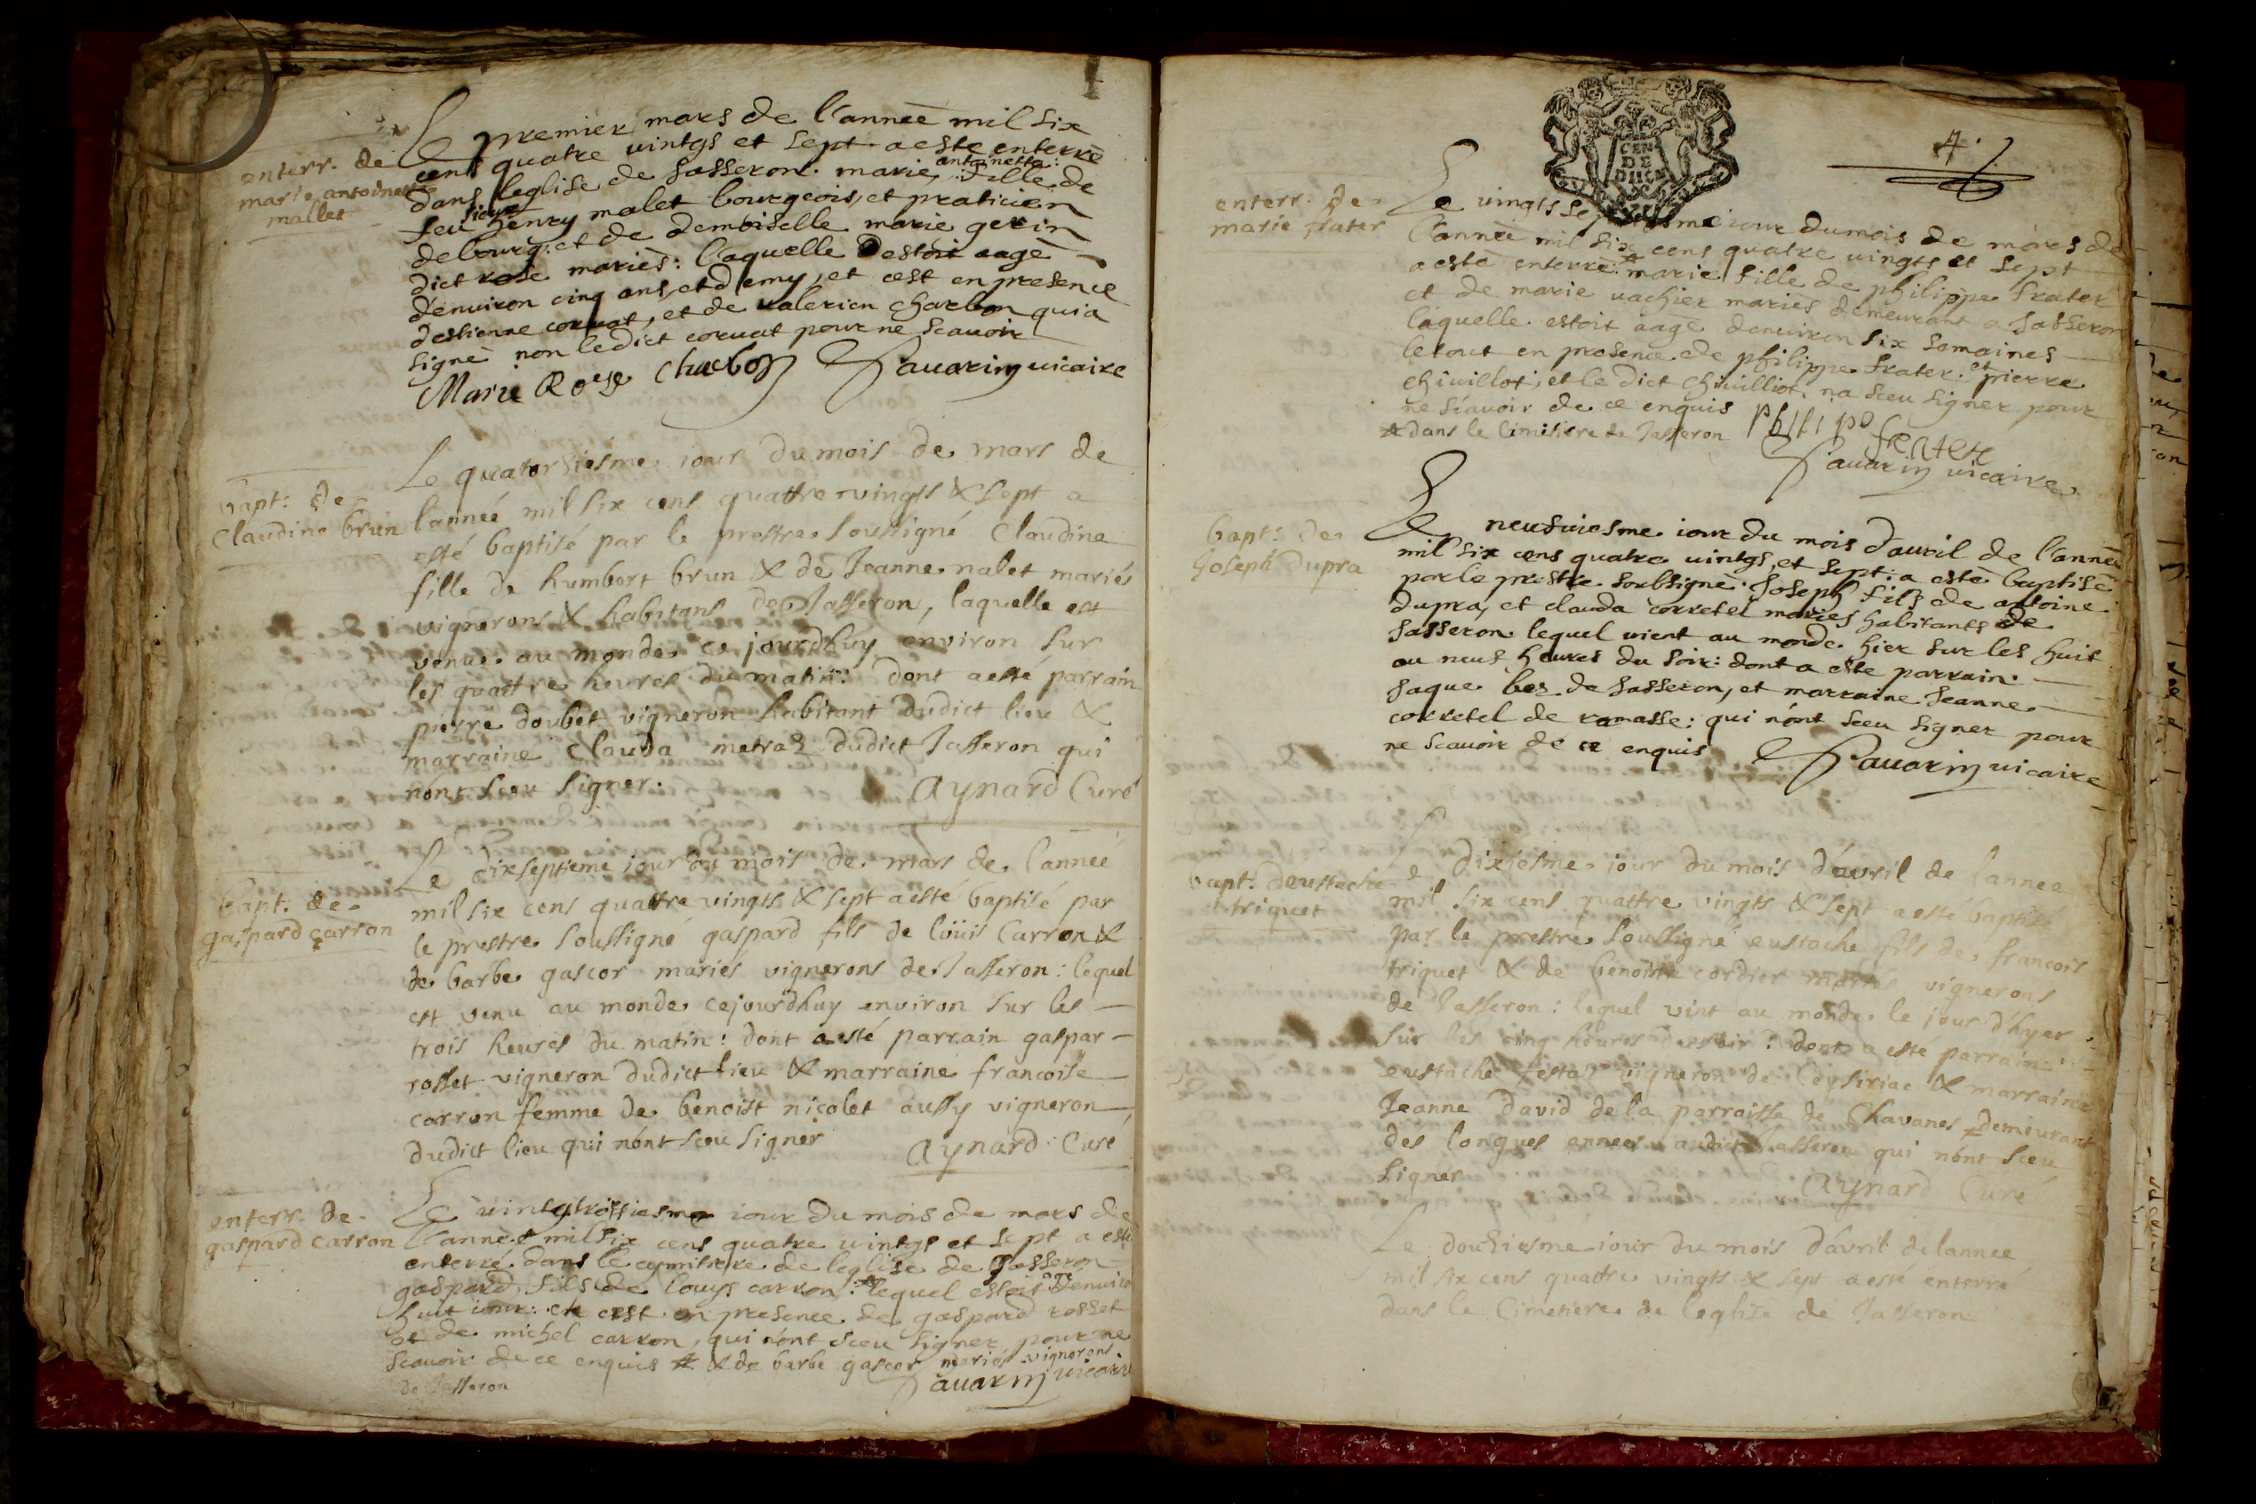 enterr. de
marie antoinette
mallet
Le premier mars de l'anneé mil six
cens quatre vintgs et sept a este enterré
dans leglise de Jasseron. marie antoinette: fille de
feu sieur henry malet bourgeois, et praticien
debourg: et de demoiselle marie gerin
dict rose mariés: laquelle estoit aagé
denuiron cinq ans, et demy, et cest en presence
destienne coruat, et de valerien charbon qui a
signé non ledict coruat pour ne scauoir
Marie Rose Charbon fauarin vicaire
bapt: de
Claudine brun
Le quatorsiesme iour du mois de mars de
l'anneé mil six cens quattre vingts & sept a
esté baptisé par le prestre soussigné Claudine
fille de humbert brun & de Jeanne nalet mariés
vignerons & habitans de Jasseron, laquelle est
venue au monde ce jourdhuy environ sur
les quattre heures du matin: dont a esté parrain
pierre doubet vigneron habitant dudict lieu &
marraine Clauda metraz dudict Jasseron qui
nónt sceu signer.
Aynard Curé
bapt. de
gaspard carron
Le dixseptieme iour du mois de mars de l'anneé
mil six cens quattre vingts & sept a esté baptisé par
le prestre soussigné gaspard fils de loüis Carron &
de barbe gascor mariés vignerons de Jasseron: lequel
est venu au monde cejourdhuy environ sur les
trois heures du matin: dont a esté parrain gaspar
rosset vigneron dudict lieu & marraine francoise
carron femme de benoist nicolet aussy vigneron
dudict lieu qui nónt sceu signer
Aynard Curé
enterr. de
gaspard carron
Le vintgtroissiesme iour du mois de mars de
l'anneé mil six cens quatre vintgs et sept a esté
enterré dans le cymitiere de leglise de Jasseron
gaspard, fils de louys carron: lequel estoit agé denuiron
huit iour: et cest en presence de gaspard rosset
et de michel carron, qui nónt sceu signer pour ne
scauoir de ce enquis & de barbe gascor mariés vignerons
de Jasseron
fauarin vicaire
4
GEN
DE
enterr: de
marie frater
Le vingts septiesme iour du mois de mars de
l'anneé mil six cens quatre vingts et sept
a esté enterré marie fille de philippe frater
et de marie vachier mariés demeurant a Jasseron
laquelle estoit aagé denuiron six semaines
letout en presence de philippe frater: et pierre
chiuillot; et le dict chiuilliot na sceu signer pour
ne scauoir de ce enquis
dans le Cimitiere de Jasseron
philipe frater
fauarin vicaire
bapt: de
Joseph dupra
Le neufuiesme iour du mois d'auril de l'anneé
mil six cens quatre vintgs, et sept: a esté baptisé
par le prestre soubsigné. Joseph fils de antoine
dupra, et clauda corretel mariés habitants de
Jasseron lequel vient au monde hier sur les huit
ou neuf heures du soir: dont a este parrain
Jaque bez de Jasseron, et marraine Jeanne
corretel de ramasse: qui nónt sceu signer pour
ne scauoir de ce enquis
fauarin vicaire
bapt: deustache
triquet
Le dixiesme iour du mois d'auril de l'anneé
mil six cens quattre vingts & sept a esté baptisé
par le prestre soussigné eustache fils de francois
triquet & de benoiste cordier mariés vignerons
de Jasseron: lequel vint au monde le jour d'hyer
sur les cinq heures de soir: dont a esté parrain
eustache festaz vigneron de Ceysiriac & marraine
Jeanne David de la parroisse de Chavanes demeurant
des longues années audict Jasseron qui nónt sceu
signer
Aynard Curé
Le douziesme iour du mois d'avril de lannee
mil six cens quattre vingts & sept a esté enterré
dans le Cimetiere de l'eglise de Jasseron